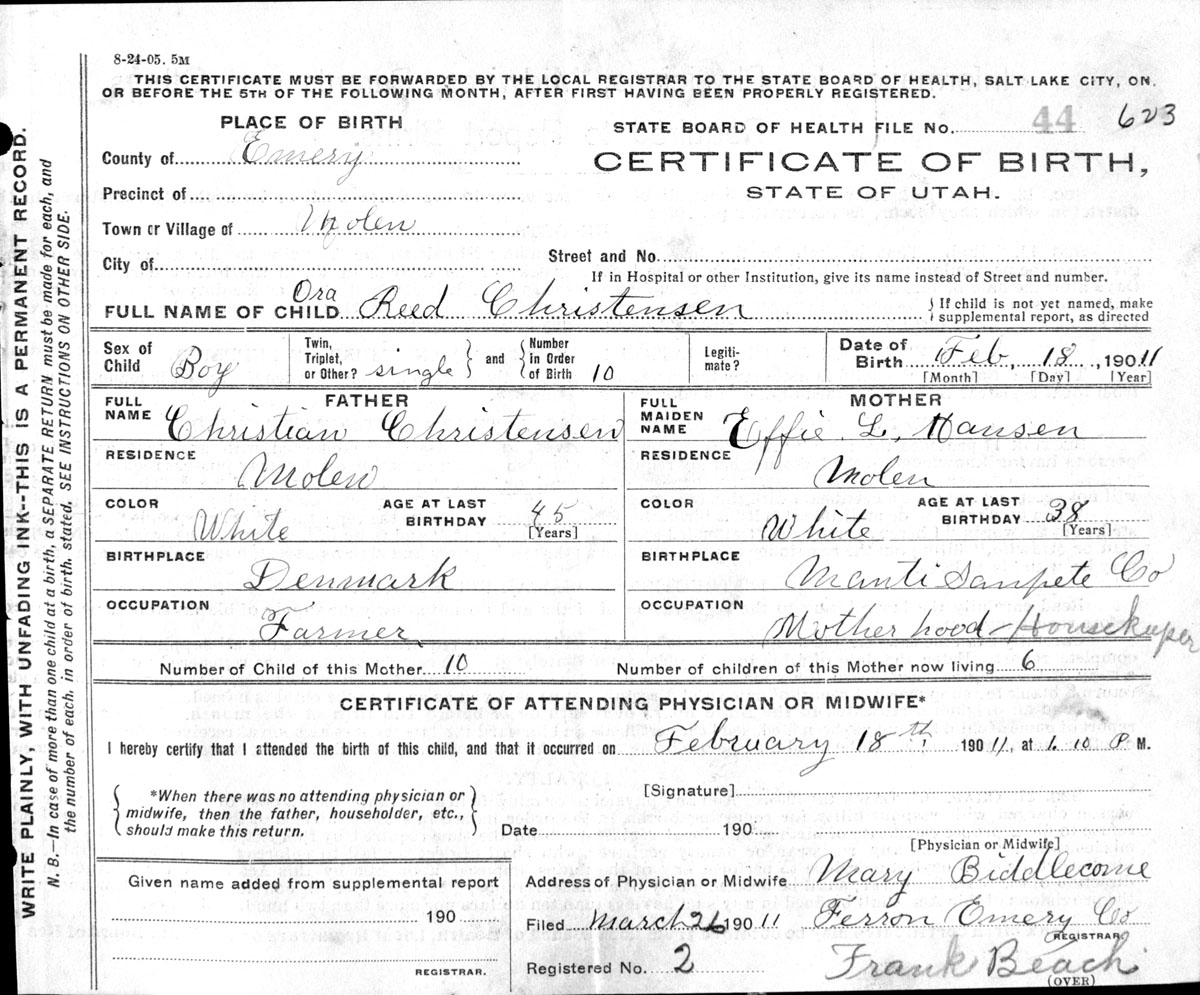 8-24-05. 5M
THIS CERTIFICATE MUST BE FORWARDED BY THE LOCAL REGISTRAR TO THE STATE BOARD OF HEALTH, SALT LAKE CITY, ON
OR BEFORE THE 5TH OF THE FOLLOWING MONTH, AFTER FIRST HAVING BEEN PROPERLY REGISTERED.
WRITE PLAINLY, WITH UNFADING INK--THIS IS A PERMANENT RECORD.
N. B.—In case of more than one child at a birth, a SEPARATE RETURN must be made for each, and
the number of each, in order of birth, stated. SEE INSTRUCTIONS ON OTHER SIDE.
PLACE OF BIRTH
County of Emery
Precinct of
Town or Village of Molen
City of
STATE BOARD OF HEALTH FILE NO. 44 623
CERTIFICATE OF BIRTH,
STATE OF UTAH.
Street and No.
If in Hospital or other Institution, give its name instead of Street and number.
FULL NAME OF CHILD Ora Reed Christensen
If child is not yet named, make
supplemental report, as directed
Sex of Child Boy
Twin, Triplet, or Other? single and Number in Order of Birth 10
Legiti-mate?
Date of Birth Feb, 18, 190 11
[Month] [Day] [Year]
FATHER
FULL NAME Christian Christensen
RESIDENCE Molen
COLOR White
AGE AT LAST BIRTHDAY 45 [Years]
BIRTHPLACE Denmark
OCCUPATION Farmer
MOTHER
FULL MAIDEN NAME Effie L. Hansen
RESIDENCE Molen
COLOR White
AGE AT LAST BIRTHDAY 38 [Years]
BIRTHPLACE Manti Sanpete Co
OCCUPATION Mother hood - Housekeeper
Number of Child of this Mother 10
Number of children of this Mother now living 6
CERTIFICATE OF ATTENDING PHYSICIAN OR MIDWIFE*
I hereby certify that I attended the birth of this child, and that it occurred on February 18th 190 11, at 1.10 P M.
*When there was no attending physician or
midwife, then the father, householder, etc.,
should make this return.
[Signature]
Date 190
[Physician or Midwife]
Given name added from supplemental report
190
REGISTRAR.
Address of Physician or Midwife Mary Biddlecome
Filed March 26 190 11 Ferron Emery Co
REGISTRAR
Registered No. 2 Frank Beach
(OVER)